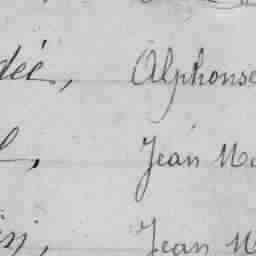 dée, Alphonse
l, Jean Ma
in, Jean M